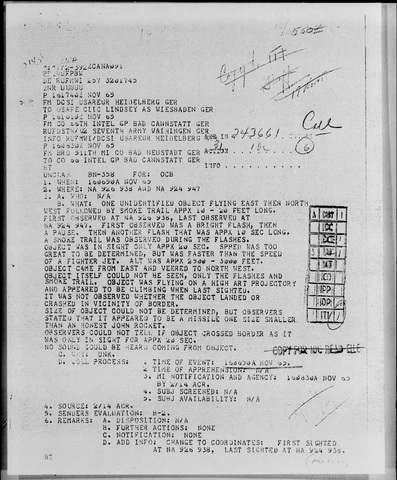 DE RUFMWI 257 3201745
ZNR UUUUU
P 161740Z NOV 65
FM DCSI USAREUR HEIDELBERG GER
TO USAFE CIIC LINDSEY AS WIESBADEN GER
FM CO 66TH INTEL GP BAD CANNSTATT GER
RUFDSTH/G2 SEVENTH ARMY VAIHINGEN GER
INFO RUFMWI/DCSI USAREUR HEIDELBERG
243661
FM BRO 511TH MI CO BAD NEUSTADT GER
TO CO 66 INTEL GP BAD CANNSTATT GER
INFO
BT
UNCLAS BN-358 FOR: OCB
1. WHEN: 160650A NOV 65
2. WHERE: NA 926 938 AND NA 924 947
3. A. WHO: N/A
B. WHAT: ONE UNIDENTIFIED OBJECT FLYING EAST THEN NORTH
WEST FOLLOWED BY SMOKE TRAIL APPX 10 - 20 FEET LONG.
FIRST OBSERVED AT NA 926 936, LAST OBSERVED AT
NA 924 947. FIRST OBSERVED WAS A BRIGHT FLASH, THEN
A PAUSE. THEN ANOTHER FLASH THAT WAS APPX 10 SEC LONG.
A SMOKE TRAIL WAS OBSERVED DURING THE FLASHES.
OBJECT WAS IN SIGHT ONLY APPX 20 SEC. SPPED WAS TOO
GREAT TO BE DETERMINED, BUT WAS FASTER THAN THE SPEED
OF A FIGHTER JET. ALT WAS APPX 2500 - 3000 FEET.
OBJECT CAME FROM EAST AND VEERED TO NORTH WEST.
OBJECT ITSELF COULD NOT BE SEEN, ONLY THE FLASHES AND
SMOKE TRAIL. OBJECT WAS FLYING ON A HIGH ART PROJECTORY
AND APPEARED TO BE CLIMBING WHEN LAST SIGHTED.
IT WAS NOT OBSERVED WHETHER THE OBJECT LANDED OR
CRASHED IN VICINITY OF BORDER.
SIZE OF OBJECT COULD NOT BE DETERMINED, BUT OBSERVERS
STATED THAT IT APPEARED TO BE A MISSILE ONE SIZE SMALLER
THAN AN HONEST JOHN ROCKET.
OBSERVERS COULD NOT TELL IF OBJECT CROSSED BORDER AS IT
WAS ONLY IN SIGHT FOR APPX 20 SEC.
NO SOUND COULD BE HEARD COMING FROM OBJECT.
COPY FOR IOC READ FILE
C. WHY: UNK.
D. COLL PROCESS: 1 TIME OF EVENT: 160650A NOV 65.
2 TIME OF APPREHENSION: N/A
3. MI NOTIFICATION AND AGENCY: 160830A NOV 65
BY 2/14 ACR.
4. SUBJ SCREENED: N/A
5. SUBJ AVAILABILITY: N/A
4. SOURCE: 2/14 ACR.
5. SENDERS EVALUATION: B-2.
6. REMARKS: A. DISPOSITION: N/A
B. FURTHER ACTIONS: NONE
C. NOTIFICATION: NONE
D. ADD INFO: CHANGE TO COORDINATES: FIRST SIGHTED
AT NA 926 938, LAST SIGHTED AT NA 924 938.
BT